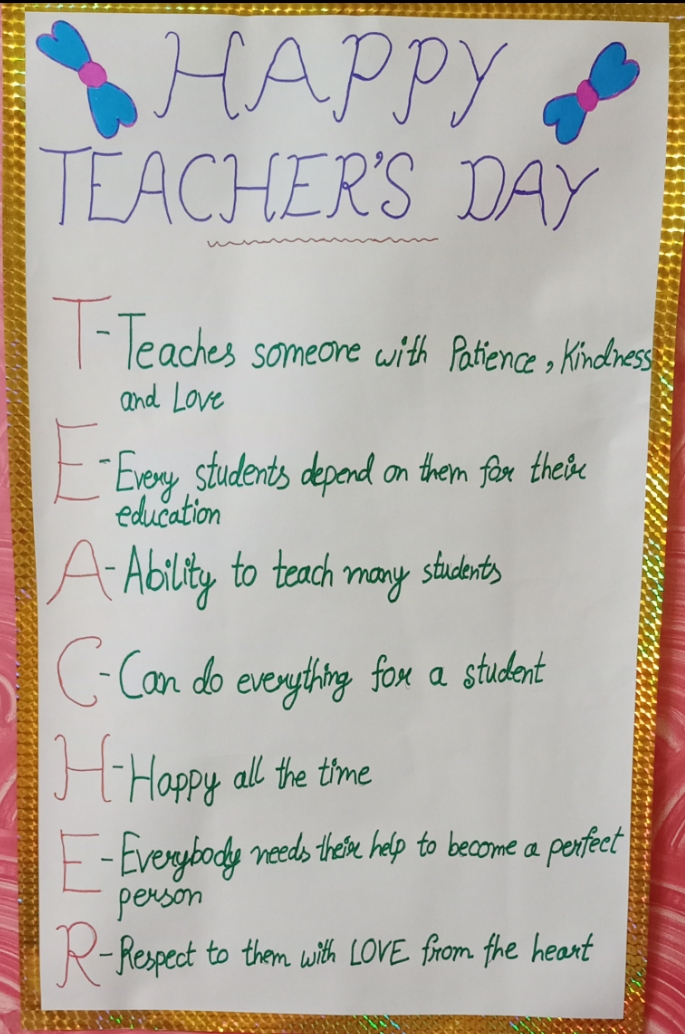 HAPPY
TEACHER'S DAY
T-Teaches someone with Patience, Kindness
and Love
E-Every students depend on them for their
education
A-Ability to teach many students
C-Can do everything for a student
H-Happy all the time
E-Everybody needs their help to become a perfect
person
R-Respect to them with LOVE from the heart